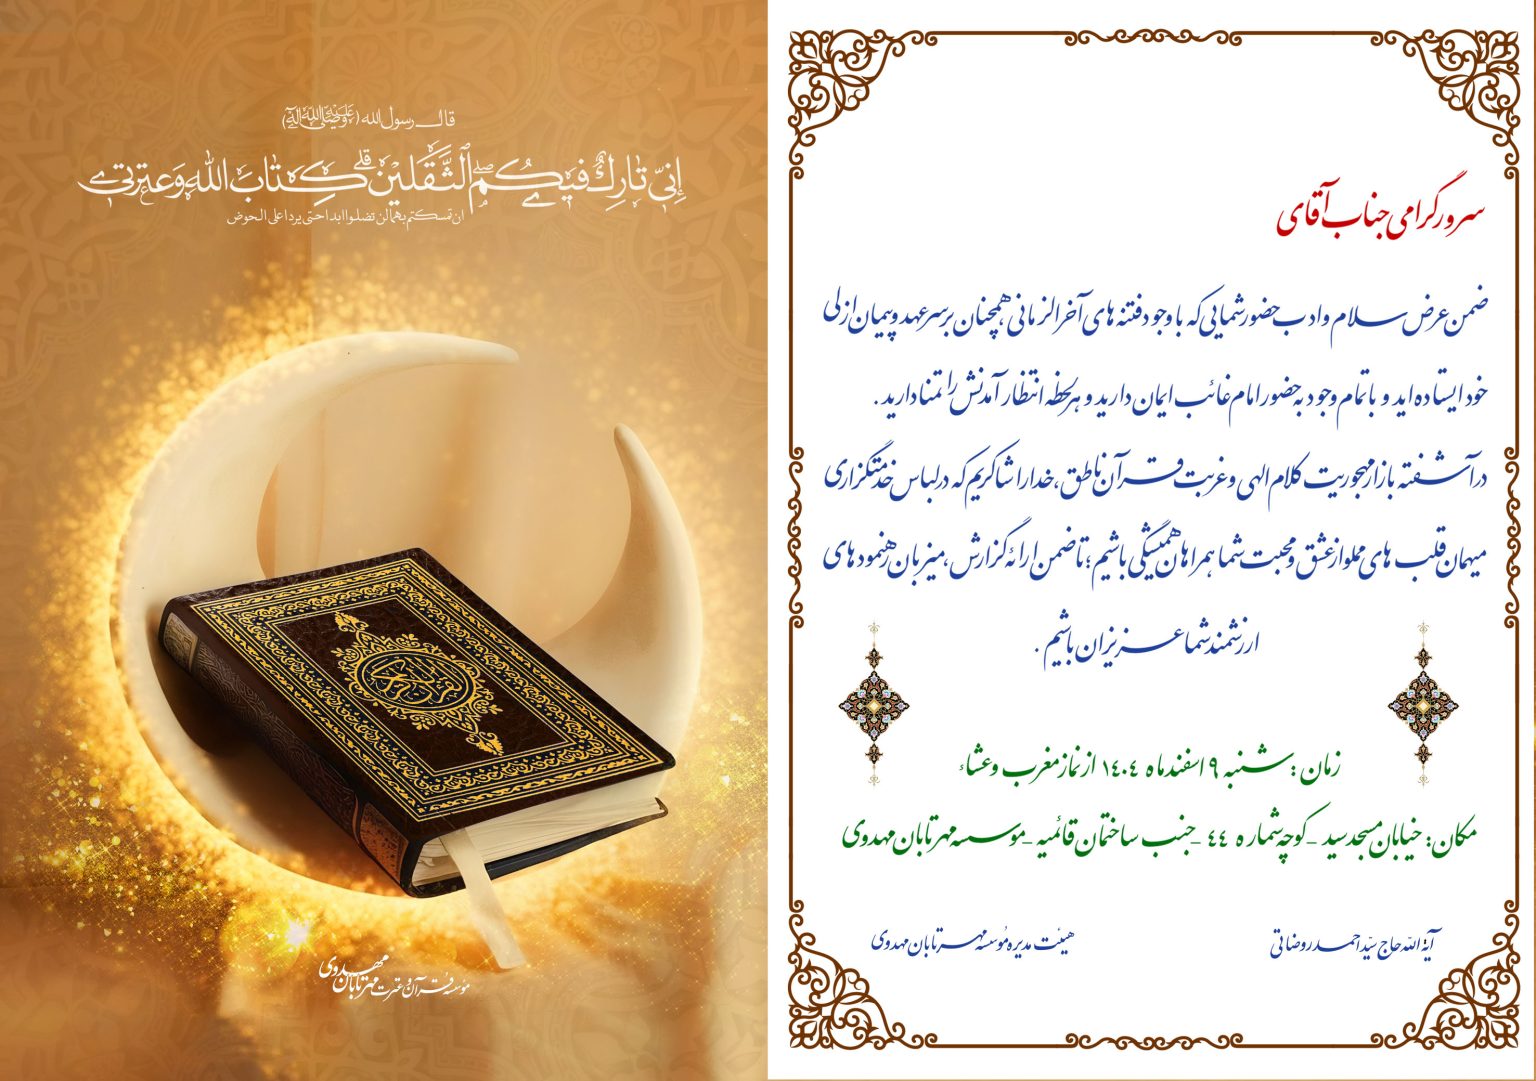 قال رسول الله (صلی الله علیه وآله)
إنّي تاركٌ فيكُم الثَّقَلَين كِتابَ اللهِ وَعترتي
ان تمسکتم بهما لن تضلوا ابدا حتی یردا علی الحوض
القرآن الکریم
مؤسسه قرآن و عترت مهر تابان مهدوی
سرور گرامی جناب آقای
ضمن عرض سلام و ادب حضور شمایی که با وجود فتنه های آخرالزمانی همچنان بر سر عهد و پیمان ازلی
خود ایستاده اید و با تمام وجود به حضور امام غائب ایمان دارید و هر لحظه انتظار آمدنش را تمنا دارید .
در آشفته بازار مهجوریت کلام الهی و غربت قرآن ناطق ، خدا را شاکریم که در لباس خدمتگزاری
میهمان قلب های مملو از عشق و محبت شما همراهان همیشگی باشیم ؛ تا ضمن ارائه گزارش ، میزبان رهنمودهای
ارزشمند شما عزیزان باشیم .
زمان : شنبه ۹ اسفند ماه ۱۴۰۴ از نماز مغرب و عشاء
مکان : خیابان مسجد سید - کوچه شماره ۴۴ - جنب ساختمان قائمیه - موسسه مهر تابان مهدوی
آیة الله حاج سیّد احمد روضاتی
هیئت مدیره مؤسسه مهر تابان مهدوی